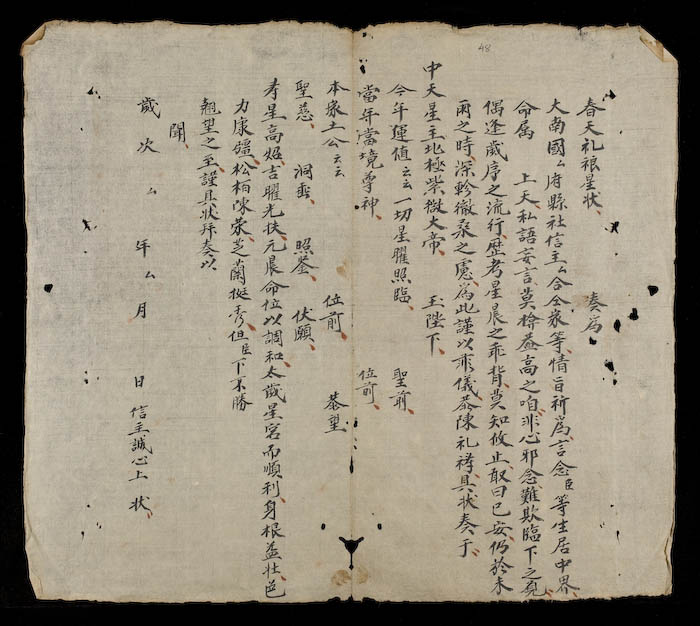 48
春天礼禳星状、　奏爲
大南國ム府縣社信主ム合全家等情旨祈爲言念臣等生居中界
命属　上天私語妄言莫揜蓋高之咱非心邪念難欺臨下之皃
偶逢歲序之流行、歷考星晨之乖背、莫知攸止敢曰已安、仍於未
雨之時、深軫徹桑之慮、爲此謹以菲儀恭陳礼禱、具状奏于、
中天星主北極紫微大帝　玉陛下、
今年運值云云一切星曜照臨、　聖前
當年當境尊神、　位前、
本家土公云云　位前、　恭望
聖慈、　洞垂、　照鉴、　伏願、
考星高炤吉曜光扶元晨命位以調和太歲星宮而順利、身根益壮邑
力康彊、松柏陳荣、芝蘭挺秀、但臣下不勝
翹望之至謹具状拜奏以
聞、
歲次ム　年ム月　日信主誠心上状、